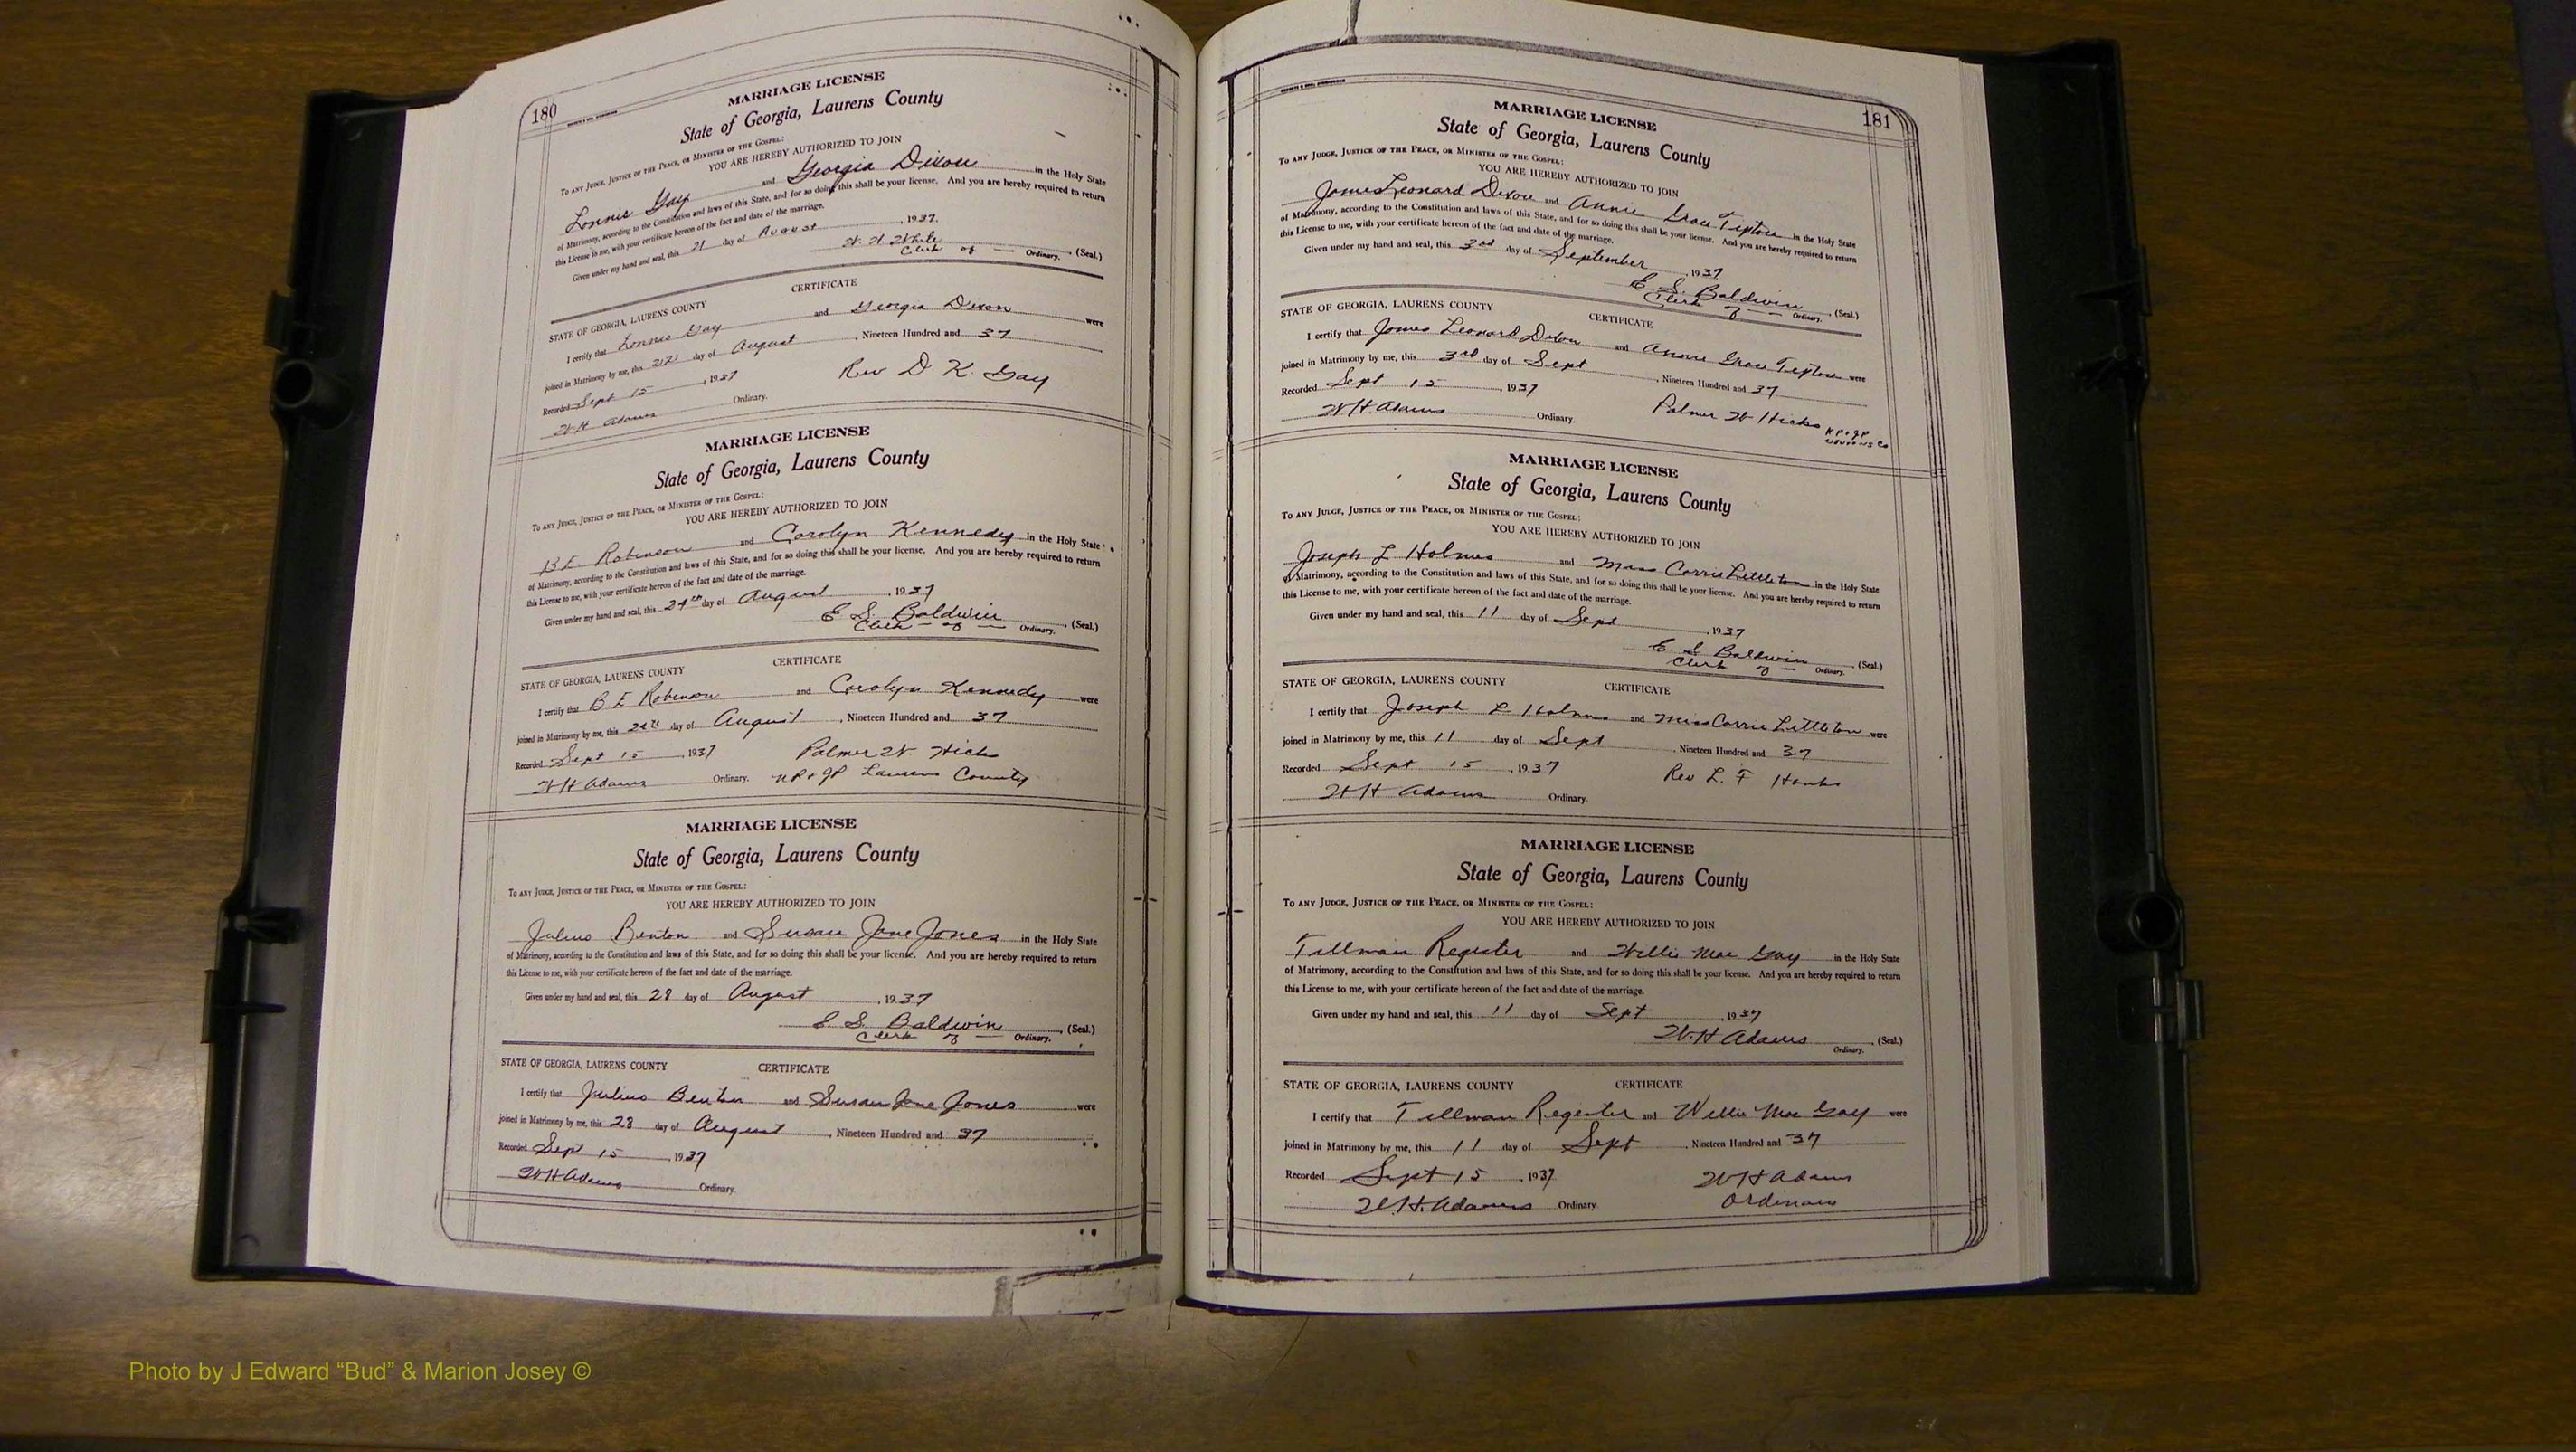 180
MARRIAGE LICENSE
State of Georgia, Laurens County
To any Judge, Justice of the Peace, or Minister of the Gospel:
YOU ARE HEREBY AUTHORIZED TO JOIN
Lonnie Gay and Georgia Dixon in the Holy State
of Matrimony, according to the Constitution and laws of this State, and for so doing this shall be your license. And you are hereby required to return
this License to me, with your certificate hereon of the fact and date of the marriage.
Given under my hand and seal, this 21 day of August, 1937.
White
Clerk of Ordinary. (Seal.)
CERTIFICATE
STATE OF GEORGIA, LAURENS COUNTY
I certify that Lonnie Gay and Georgia Dixon were
joined in Matrimony by me, this day of August, Nineteen Hundred and 37
Recorded Sept 15, 1937 Rev D. K. Gay
W H Adams Ordinary.
MARRIAGE LICENSE
State of Georgia, Laurens County
To any Judge, Justice of the Peace, or Minister of the Gospel:
YOU ARE HEREBY AUTHORIZED TO JOIN
B E Robinson and Carolyn Kennedy in the Holy State
of Matrimony, according to the Constitution and laws of this State, and for so doing this shall be your license. And you are hereby required to return
this License to me, with your certificate hereon of the fact and date of the marriage.
Given under my hand and seal, this 24th day of August, 1937
E. S. Baldwin (Seal.)
Clerk of Ordinary.
CERTIFICATE
STATE OF GEORGIA, LAURENS COUNTY
I certify that B E Robinson and Carolyn Kennedy were
joined in Matrimony by me, this 24th day of August, Nineteen Hundred and 37
Recorded Sept 15, 1937 Palmer W. Hicks
W H Adams Ordinary. N P & J P Laurens County
MARRIAGE LICENSE
State of Georgia, Laurens County
To any Judge, Justice of the Peace, or Minister of the Gospel:
YOU ARE HEREBY AUTHORIZED TO JOIN
Julius Benton and Susan Jane Jones in the Holy State
of Matrimony, according to the Constitution and laws of this State, and for so doing this shall be your license. And you are hereby required to return
this License to me, with your certificate hereon of the fact and date of the marriage.
Given under my hand and seal, this 28 day of August, 1937
E. S. Baldwin, (Seal.)
Clerk of Ordinary.
STATE OF GEORGIA, LAURENS COUNTY CERTIFICATE
I certify that Julius Benton and Susan Jane Jones were
joined in Matrimony by me, this 28 day of August, Nineteen Hundred and 37
Recorded Sept 15, 1937
W H Adams Ordinary
181
MARRIAGE LICENSE
State of Georgia, Laurens County
To any Judge, Justice of the Peace, or Minister of the Gospel:
YOU ARE HEREBY AUTHORIZED TO JOIN
James Leonard Dixon and Annie Grace Tipton in the Holy State
of Matrimony, according to the Constitution and laws of this State, and for so doing this shall be your license. And you are hereby required to return
this License to me, with your certificate hereon of the fact and date of the marriage.
Given under my hand and seal, this 3rd day of September, 1937
E S. Baldwin (Seal.)
Clerk of Ordinary.
STATE OF GEORGIA, LAURENS COUNTY CERTIFICATE
I certify that James Leonard Dixon and Annie Grace Tipton were
joined in Matrimony by me, this 3rd day of Sept, Nineteen Hundred and 37
Recorded Sept 15, 1937
W H Adams Ordinary. Palmer W Hicks N P & J P
Laurens Co
MARRIAGE LICENSE
State of Georgia, Laurens County
To any Judge, Justice of the Peace, or Minister of the Gospel:
YOU ARE HEREBY AUTHORIZED TO JOIN
Joseph L Holmes and Miss Corrie Littleton in the Holy State
of Matrimony, according to the Constitution and laws of this State, and for so doing this shall be your license. And you are hereby required to return
this License to me, with your certificate hereon of the fact and date of the marriage.
Given under my hand and seal, this 11 day of Sept, 1937
E S Baldwin (Seal.)
Clerk of Ordinary.
STATE OF GEORGIA, LAURENS COUNTY CERTIFICATE
I certify that Joseph L Holmes and Miss Corrie Littleton were
joined in Matrimony by me, this 11 day of Sept, Nineteen Hundred and 37
Recorded Sept 15, 1937 Rev L. F
W H Adams Ordinary.
MARRIAGE LICENSE
State of Georgia, Laurens County
To any Judge, Justice of the Peace, or Minister of the Gospel:
YOU ARE HEREBY AUTHORIZED TO JOIN
Tillman Register and Willie Mae Gay in the Holy State
of Matrimony, according to the Constitution and laws of this State, and for so doing this shall be your license. And you are hereby required to return
this License to me, with your certificate hereon of the fact and date of the marriage.
Given under my hand and seal, this 11 day of Sept, 1937
W. H Adams (Seal.)
Ordinary.
STATE OF GEORGIA, LAURENS COUNTY CERTIFICATE
I certify that Tillman Register and Willie Mae Gay were
joined in Matrimony by me, this 11 day of Sept, Nineteen Hundred and 37
Recorded Sept 15, 1937 W H Adams
W. H. Adams Ordinary Ordinary
Photo by J Edward “Bud” & Marion Josey ©